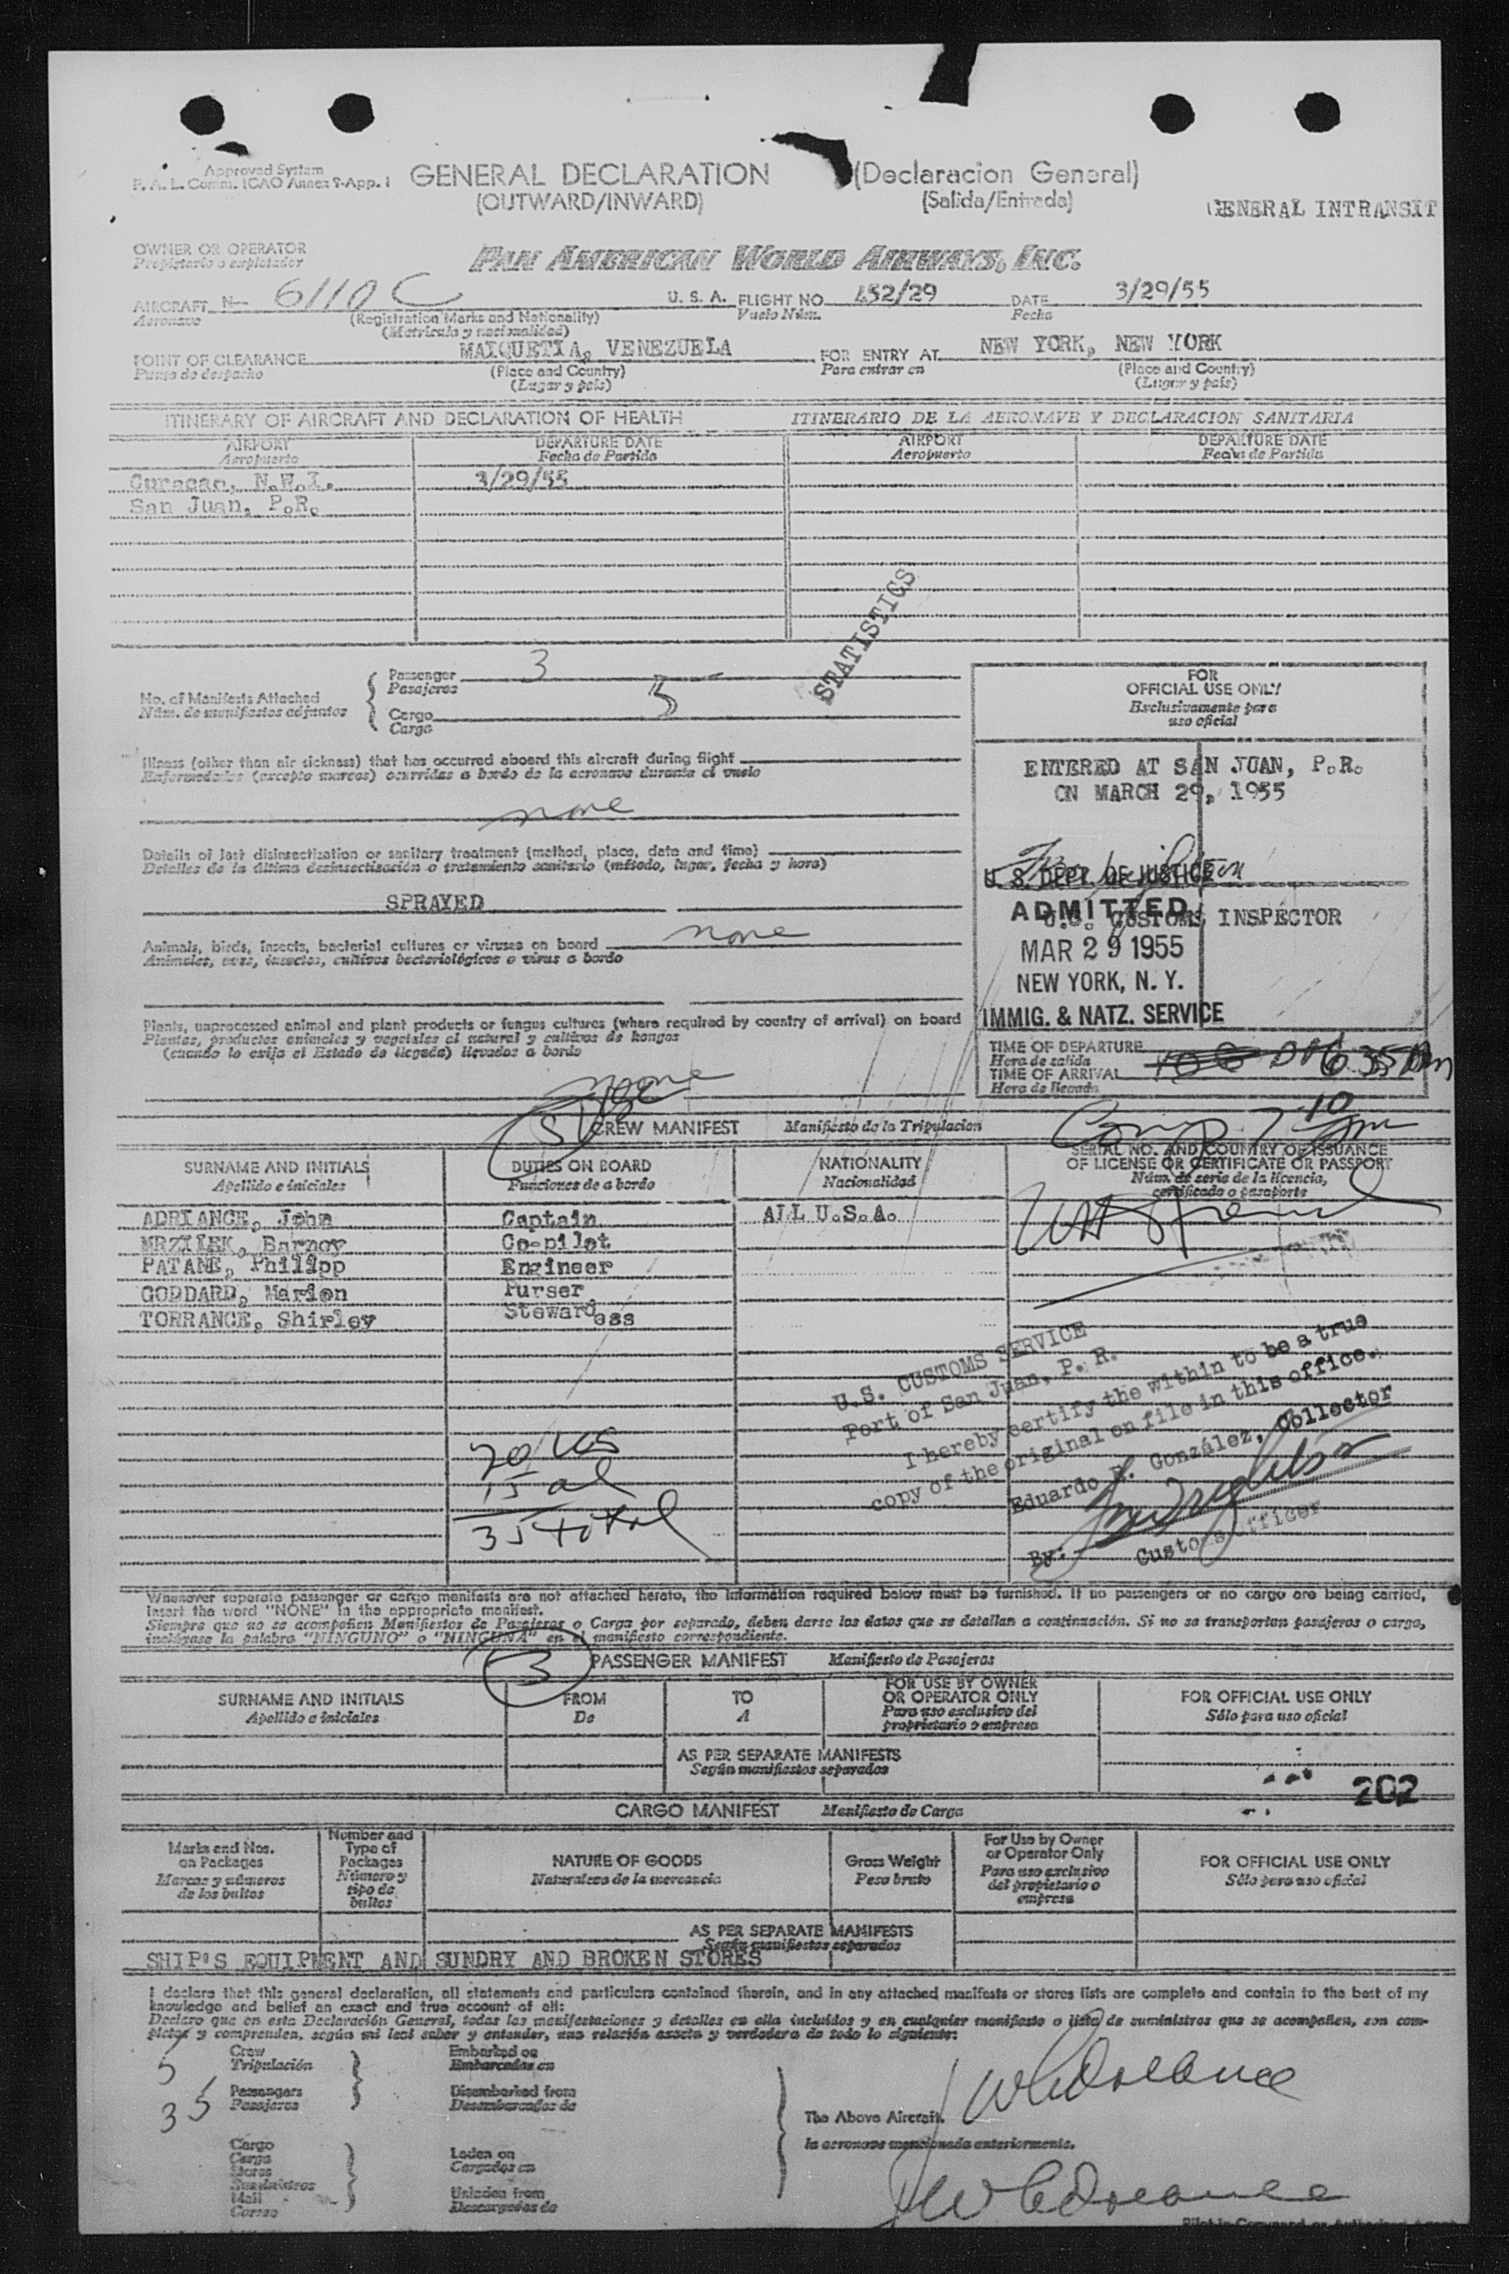 Approved System
F. A. L. Comm. ICAO Annex 9-App. 1
GENERAL DECLARATION (Declaracion General)
(OUTWARD/INWARD) (Salida/Entrada)
GENERAL INTRANSIT
OWNER OR OPERATOR
Propietario o explotador
PAN AMERICAN WORLD AIRWAYS, INC.
AIRCRAFT N- 6110 C U. S. A. FLIGHT NO. 452/29 DATE 3/29/55
Aeronave (Registration Marks and Nationality) Vuelo Núm. Fecha
(Matricula y nacionalidad)
POINT OF CLEARANCE MAIQUETIA, VENEZUELA FOR ENTRY AT NEW YORK, NEW YORK
Punto de despacho (Place and Country) Para entrar en (Place and Country)
(Lugar y país) (Lugar y país)
ITINERARY OF AIRCRAFT AND DECLARATION OF HEALTH ITINERARIO DE LA AERONAVE Y DECLARACION SANITARIA
AIRPORT DEPARTURE DATE AIRPORT DEPARTURE DATE
Aeropuerto Fecha de Partida Aeropuerto Fecha de Partida
Curacao, N.W.I. 3/29/55
San Juan, P.R.
STATISTICS
No. of Manifests Attached
Núm. de manifiestos adjuntos
Passenger 3
Pasajeros
Cargo 5
Carga
FOR
OFFICIAL USE ONLY
Exclusivamente para
uso oficial
Illness (other than air sickness) that has occurred aboard this aircraft during flight
Enfermedades (excepto mareos) ocurridas a bordo de la aeronave durante el vuelo
none
ENTERED AT SAN JUAN, P.R.
ON MARCH 29, 1955
Details of last disinsectization or sanitary treatment (method, place, date and time)
Detalles de la última desinsectización o tratamiento sanitario (método, lugar, fecha y hora)
SPRAYED
U. S. DEPT. OF JUSTICE
ADMITTED
U.S. CUSTOMS INSPECTOR
MAR 29 1955
NEW YORK, N. Y.
IMMIG. & NATZ. SERVICE
Animals, birds, insects, bacterial cultures or viruses on board none
Animales, aves, insectos, cultivos bacteriológicos o virus a bordo
Plants, unprocessed animal and plant products or fungus cultures (where required by country of arrival) on board
Plantas, productos animales y vegetales al natural y cultivos de hongos
(cuando lo exija el Estado de llegada) llevados a bordo
none
TIME OF DEPARTURE
Hora de salida
TIME OF ARRIVAL 635 Pm
Hora de llegada
5 CREW MANIFEST Manifiesto de la Tripulacion
Comp. 7 10 pm
SURNAME AND INITIALS DUTIES ON BOARD NATIONALITY SERIAL NO. AND COUNTRY OF ISSUANCE
OF LICENSE OR CERTIFICATE OR PASSPORT
Apellido e iniciales Funciones de a bordo Nacionalidad Núm. de serie de la licencia,
certificado o pasaporte
ADRIANCE, John Captain ALL U.S.A.
MRZILEK, Barney Co-pilot
PATANE, Philipp Engineer
GODDARD, Marion Purser
TORRANCE, Shirley Stewardess
U.S. CUSTOMS SERVICE
Port of San Juan, P. R.
I hereby certify the within to be a true
copy of the original on file in this office.
Eduardo R. González, Collector
By:
Customs Officer
20 US
15 al
35 total
Whenever separate passenger or cargo manifests are not attached hereto, the information required below must be furnished. If no passengers or no cargo are being carried,
insert the word "NONE" in the appropriate manifest.
Siempre que no se acompañen Manifiestos de Pasajeros o Carga por separado, deben darse los datos que se detallan a continuación. Si no se transportan pasajeros o carga,
inclúyase la palabra "NINGUNO" o "NINGUNA" en el manifiesto correspondiente.
3 PASSENGER MANIFEST Manifiesto de Pasajeros
SURNAME AND INITIALS FROM TO FOR USE BY OWNER
OR OPERATOR ONLY FOR OFFICIAL USE ONLY
Apellido e iniciales De A Para uso exclusivo del
propietario o empresa Sólo para uso oficial
AS PER SEPARATE MANIFESTS
Según manifiestos separados
202
CARGO MANIFEST Manifiesto de Carga
Marks and Nos.
on Packages
Marcas y números
de los bultos
Number and
Type of
Packages
Número y
tipo de
bultos
NATURE OF GOODS
Naturaleza de la mercancía
Gross Weight
Peso bruto
For Use by Owner
or Operator Only
Para uso exclusivo
del propietario o
empresa
FOR OFFICIAL USE ONLY
Sólo para uso oficial
AS PER SEPARATE MANIFESTS
Según manifiestos separados
SHIP'S EQUIPMENT AND SUNDRY AND BROKEN STORES
I declare that this general declaration, all statements and particulars contained therein, and in any attached manifests or stores lists are complete and contain to the best of my
knowledge and belief an exact and true account of all:
Declaro que en esta Declaración General, todas las manifestaciones y detalles en ella incluídos y en cualquier manifiesto o lista de suministros que se acompañen, son com-
pletos y comprenden, según mi leal saber y entender, una relación exacta y verdadera de todo lo siguiente:
5 Crew
Tripulación
35 Passengers
Pasajeros
Embarked on
Embarcados en
Disembarked from
Desembarcados de
Cargo
Carga
Stores
Suministros
Mail
Correo
Laden on
Cargados en
Unladen from
Descargados de
The Above Aircraft.
la aeronave mencionada anteriormente.